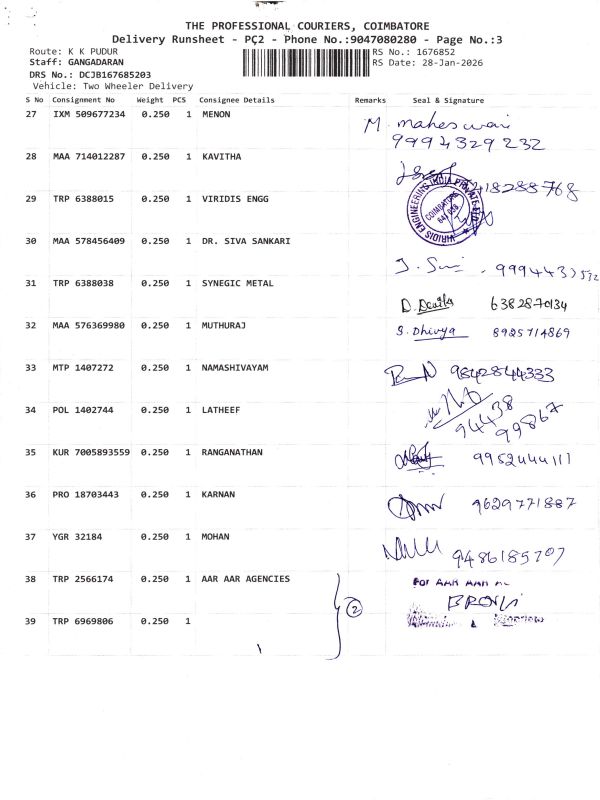 THE PROFESSIONAL COURIERS, COIMBATORE
Delivery Runsheet - PC2 - Phone No.:9047080280 - Page No.:3
Route: K K PUDUR RS No.: 1676852
Staff: GANGADARAN RS Date: 28-Jan-2026
DRS No.: DCJB167685203
Vehicle: Two Wheeler Delivery
S No Consignment No Weight PCS Consignee Details Remarks Seal & Signature
27 IXM 509677234 0.250 1 MENON
M. maheswari
9994329232
28 MAA 714012287 0.250 1 KAVITHA
18288768
29 TRP 6388015 0.250 1 VIRIDIS ENGG
VIRIDIS ENGINEERING INDIA PRIVATE LTD
COIMBATORE
30 MAA 578456409 0.250 1 DR. SIVA SANKARI
31 TRP 6388038 0.250 1 SYNEGIC METAL
6382870134
32 MAA 576369980 0.250 1 MUTHURAJ
S. Dhivya 8925714869
33 MTP 1407272 0.250 1 NAMASHIVAYAM
9842844333
34 POL 1402744 0.250 1 LATHEEF
94438
99867
35 KUR 7005893559 0.250 1 RANGANATHAN
9952444111
36 PRO 18703443 0.250 1 KARNAN
9629771887
37 YGR 32184 0.250 1 MOHAN
9486185707
38 TRP 2566174 0.250 1 AAR AAR AGENCIES
2
39 TRP 6969806 0.250 1